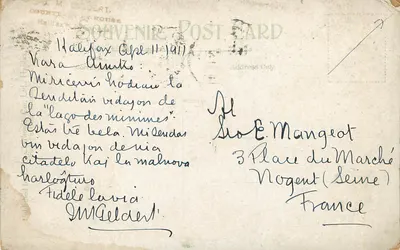 SOUVENIR POST CARD
Halifax Apr 11 1911
Kara Amiko:
Mi ricevis hodiaŭ la
senditan vidaĵon de
la "lago des minimes".
Estas tre bela. Mi sendas
vidaĵon de nia
citadelo kaj la malnova
horloĝturo
Fidele la via
Al
Sro E. Mangeot
3 Place du Marché
Nogent (Seine)
France